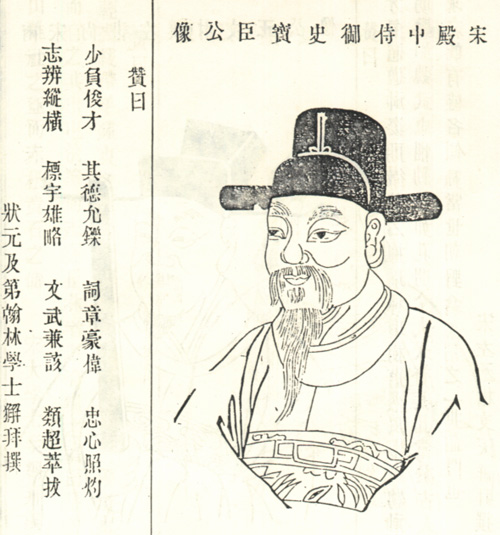 宋殿中侍御史賓臣公像
贊曰
少負俊才 其德允鑠 詞章豪偉 忠心照灼
志辨縱橫 標宇雄略 文武兼該 類超萃拔
狀元及第翰林學士觧拜撰